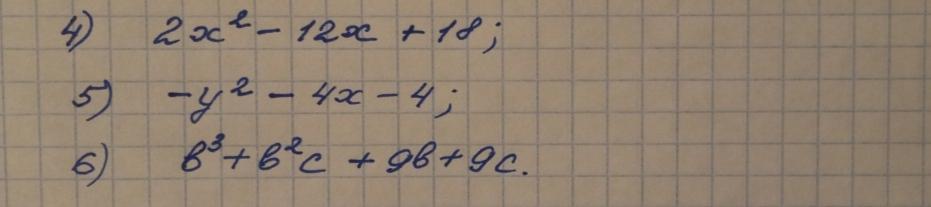 4) 2x² - 12x + 18;
5) -y² - 4x - 4;
6) b³ + b²c + 9b + 9c.